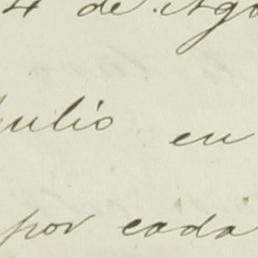 4 de Ago
Julio en
por cada